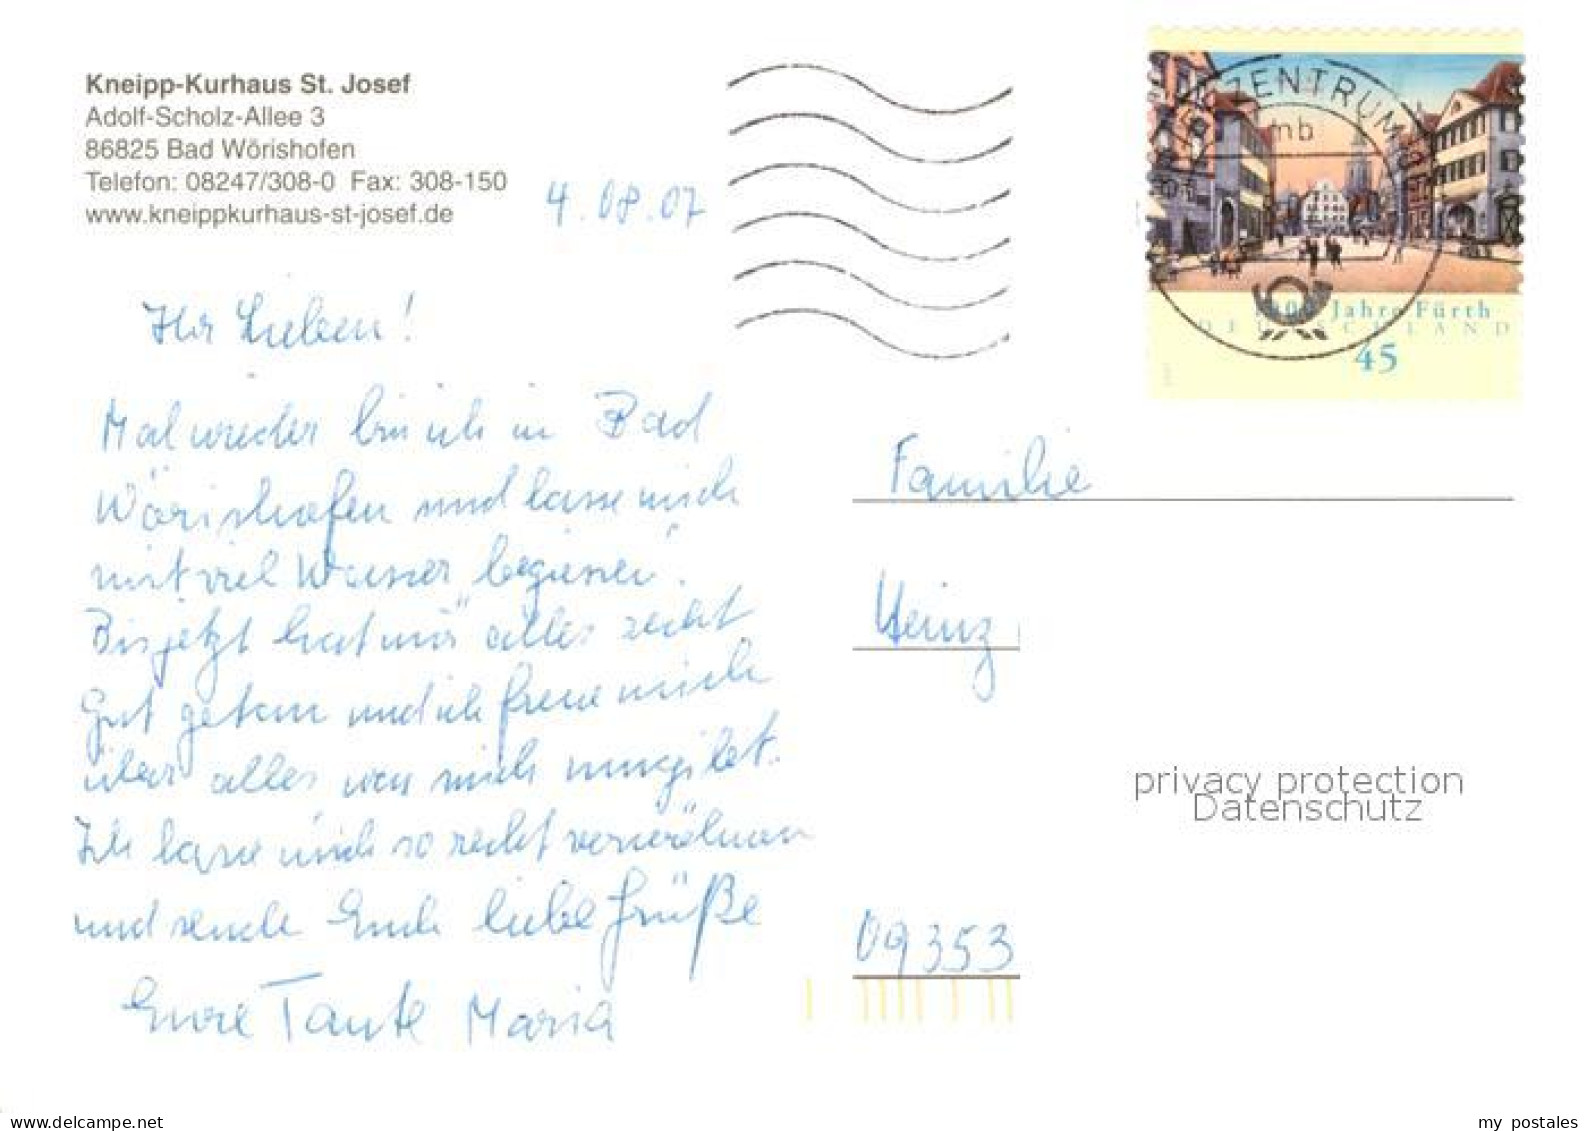 Kneipp-Kurhaus St. Josef
Adolf-Scholz-Allee 3
86825 Bad Wörishofen
Telefon: 08247/308-0 Fax: 308-150
www.kneippkurhaus-st-josef.de
4.08.07
ZENTRUM
mb
1000 Jahre Fürth
DEUTSCHLAND
45
Ihr Lieben!
Mal wieder bin ich in Bad
Wörishofen und lasse mich
mit viel Wasser „begiessen".
Bis jetzt hat mir alles recht
Gut getan und ich freue mich
über alles was mich umgibt.
Ich lasse mich so recht verwöhnen
und sende Euch liebe Grüße
Eure Tante Maria
Familie
Heinz
09353
privacy protection
Datenschutz
www.delcampe.net
my_postales